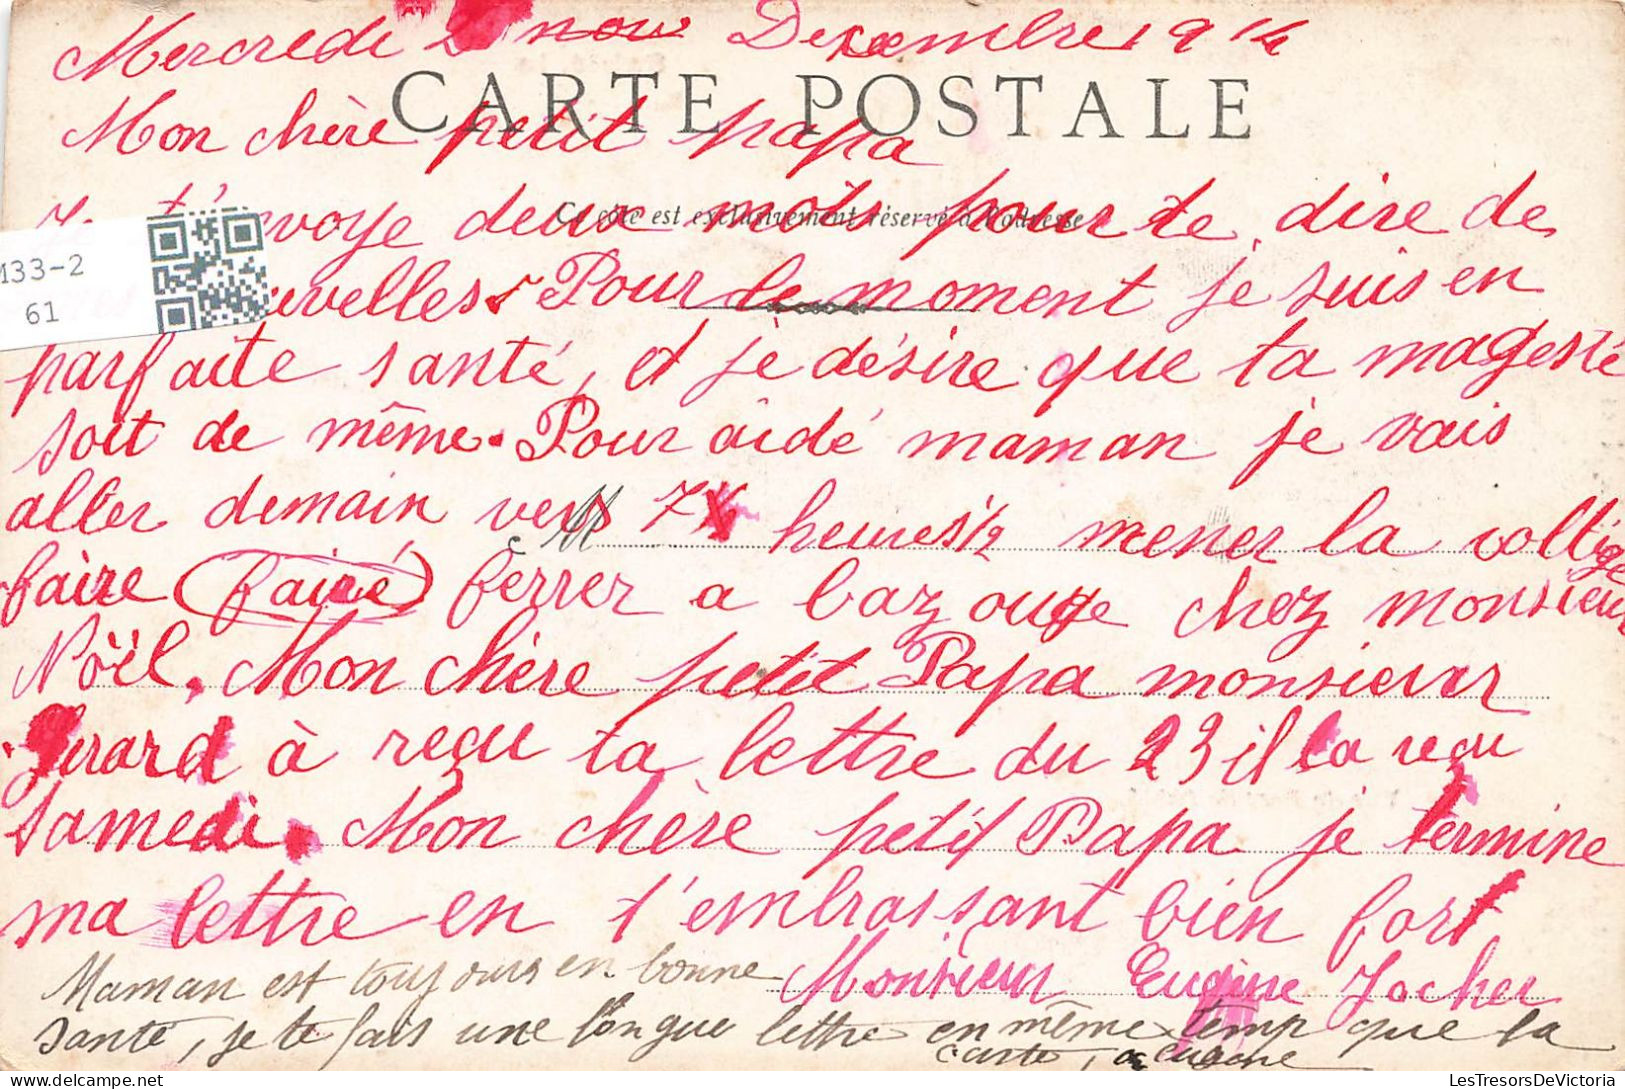 Mercredi 2 nov Decembre 1914
CARTE POSTALE
Mon chère petit papa
Je t'envoye deux mots pour te dire de
Ce côté est exclusivement réservé à l'adresse
M33-2
61
nouvelles Pour le moment je suis en
parfaite santé, et je désire que ta magesté
soit de même. Pour aidé maman je vais
aller demain vers 7 heures 1/2 mener la voltige
M
faire faire ferrer a bazouge chez monsieur
Nöël. Mon chère petit Papa monsieur
Gerard à reçu ta lettre du 23 il la reçu
Samedi. Mon chère petit Papa je termine
ma lettre en t'embrassant bien fort
Monsieur Eugène Jocher
Maman est toujours en bonne
santé, je te fais une longue lettre en même temp que la
carte, a Eugene
LesTresorsDeVictoria